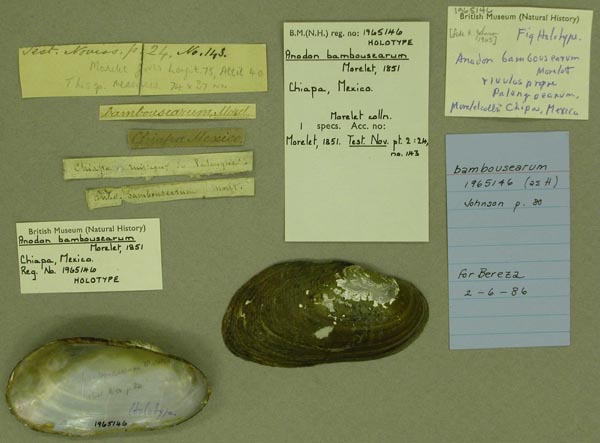 Test. Noviss. p. 24. No. 143.
Morelet gives longit. 75, Altit 40
This sp. measures 74 x 37 mm
Bambousearum. Morl.
Chiapa Mexico.
Chiapa
bambousearum morl.
British Museum (Natural History)
Anodon bambousearum
Morelet, 1851
Chiapa, Mexico.
Reg. No. 1965146
HOLOTYPE
B.M.(N.H.) reg. no: 1965146
HOLOTYPE
Anodon bambousearum
Morelet, 1851
Chiapa, Mexico.
Morelet colln.
1 specs. Acc. no:
Morelet, 1851. Test. Nov. pt. 2: 24,
no. 143
1965146
British Museum (Natural History)
Fig Holotype.
Anodon bambousearum
Morelet
rivulos prope
Palenquearum,
Morelet colln Chipa, Mexico
bambousearum
1965146 (as H)
Johnson p. 30
For Bereza
2-6-86
Holotype.
1965146